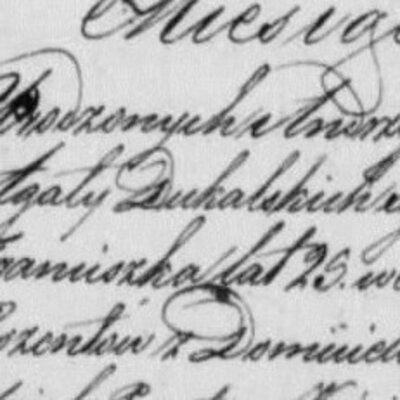 Miesiąc
Urodzonych Andrze
Agaty Dukalskich
Franciszka lat 25. we
Rozentów z Domini